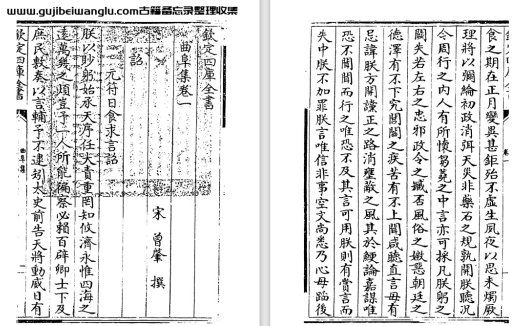 www.gujibeiwanglu.com古籍备忘录整理收集
欽定四庫全書
曲阜集卷一
宋 曾肇 撰
詔
元符日食求言詔
朕以眇躬始承天序任大責重罔知攸濟永惟四海之
遠萬幾之煩豈予一人所能徧察必賴百辟卿士下及
庶民敷奏以言輔予不逮矧太史前告天將動威日有
欽定四庫全書
曲阜集
食之期在正月變異甚鉅殆不虛生夙夜以思未燭厥
理將以彌綸初政消弭天災非藥石之規孰開朕聽況
今周行之内人有所懷芻蕘之中言亦可採凡朕躬之
闕失若左右之忠邪政令之臧否風俗之媺惡朝廷之
德澤有不下究閭閻之疾苦有不上聞咸聽直言毋有
忌諱朕方開讜正之路消壅蔽之風其於鯁論嘉謀唯
恐不聞聞而行之唯恐不及其言可用朕則有賞言而
失中朕不加罪朕言唯信非事空文尚悉乃心毋蹈後